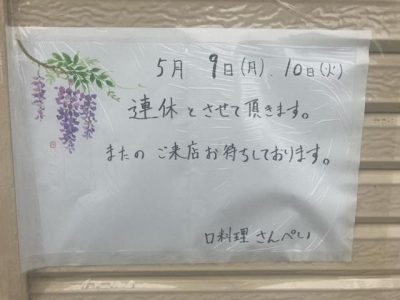 5月 9日(月). 10日(火)
連休とさせて頂きます。
またの ご来店お待ちしております。
口料理 さんぺい